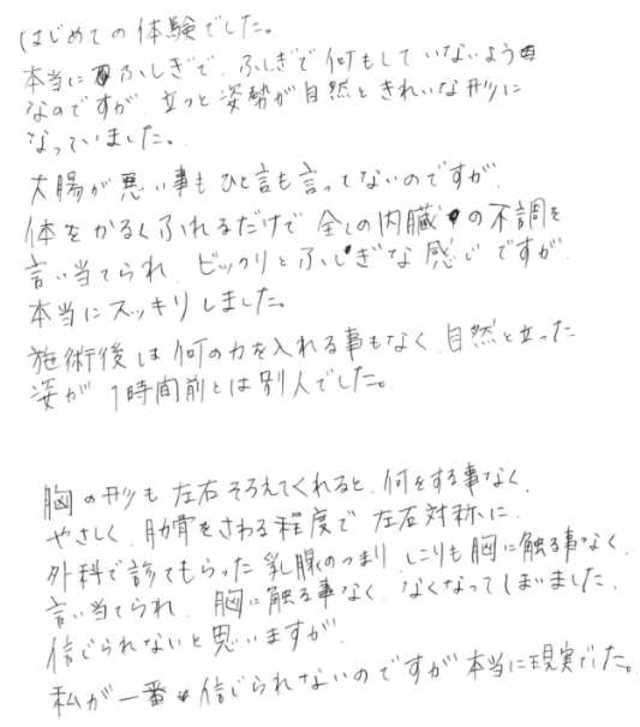 はじめての体験でした。
本当にふしぎで、ふしぎで何もしていないよう
なのですが、立つと姿勢が自然ときれいな形に
なっていました。
大腸が悪い事もひと言も言ってないのですが、
体をかるくふれるだけで全しの内臓の不調を
言い当てられ、ビックリとふしぎな感じですが、
本当にスッキリしました。
施術後は何の力を入れる事もなく、自然と立った
姿が1時間前とは別人でした。
胸の形も左右そろえてくれると、何をする事なく、
やさしく、肋骨をさわる程度で左右対称に、
外科で診てもらった乳腺のつまり、しこりも胸に触る事なく、
言い当てられ、胸に触る事なく、なくなってしまいました。
信じられないと思いますが、
私が一番信じられないのですが本当に現実でした。